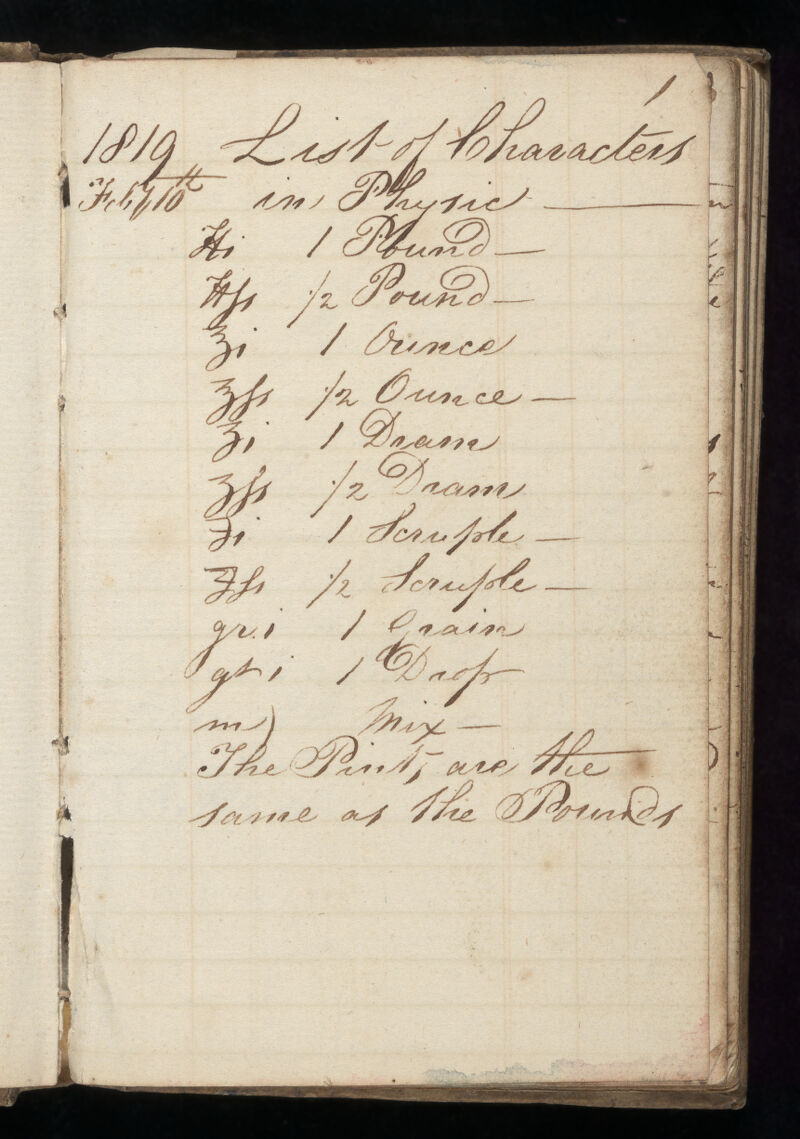 1
1819 List of Characters
Feby 10th in Physic —
℔i 1 Pound —
℔ſs 1/2 Pound —
℥i 1 Ounce
℥ſs 1/2 Ounce —
ʒi 1 Dram
ʒſs 1/2 Dram
℈i 1 Scruple —
℈ſs 1/2 Scruple —
gr. i 1 Grain
gt i 1 Drop
m) Mix —
The Pints are the
same as the Pounds